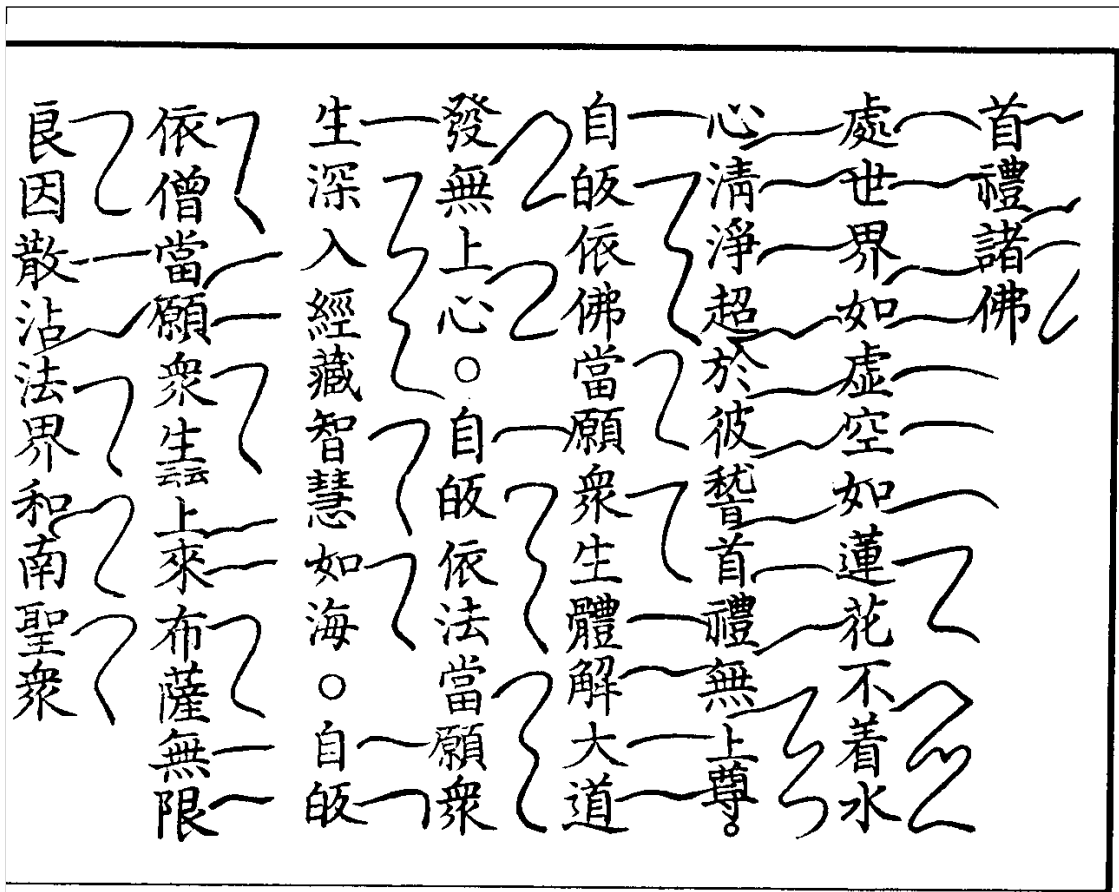 首禮諸佛
處世界如虛空如蓮花不着水
心清淨超於彼䭫首禮無上尊。
自皈依佛當願衆生體解大道
發無上心○自皈依法當願衆
生深入經藏智慧如海○自皈
依僧當願衆生云云上來布薩無限
良因散沾法界和南聖衆